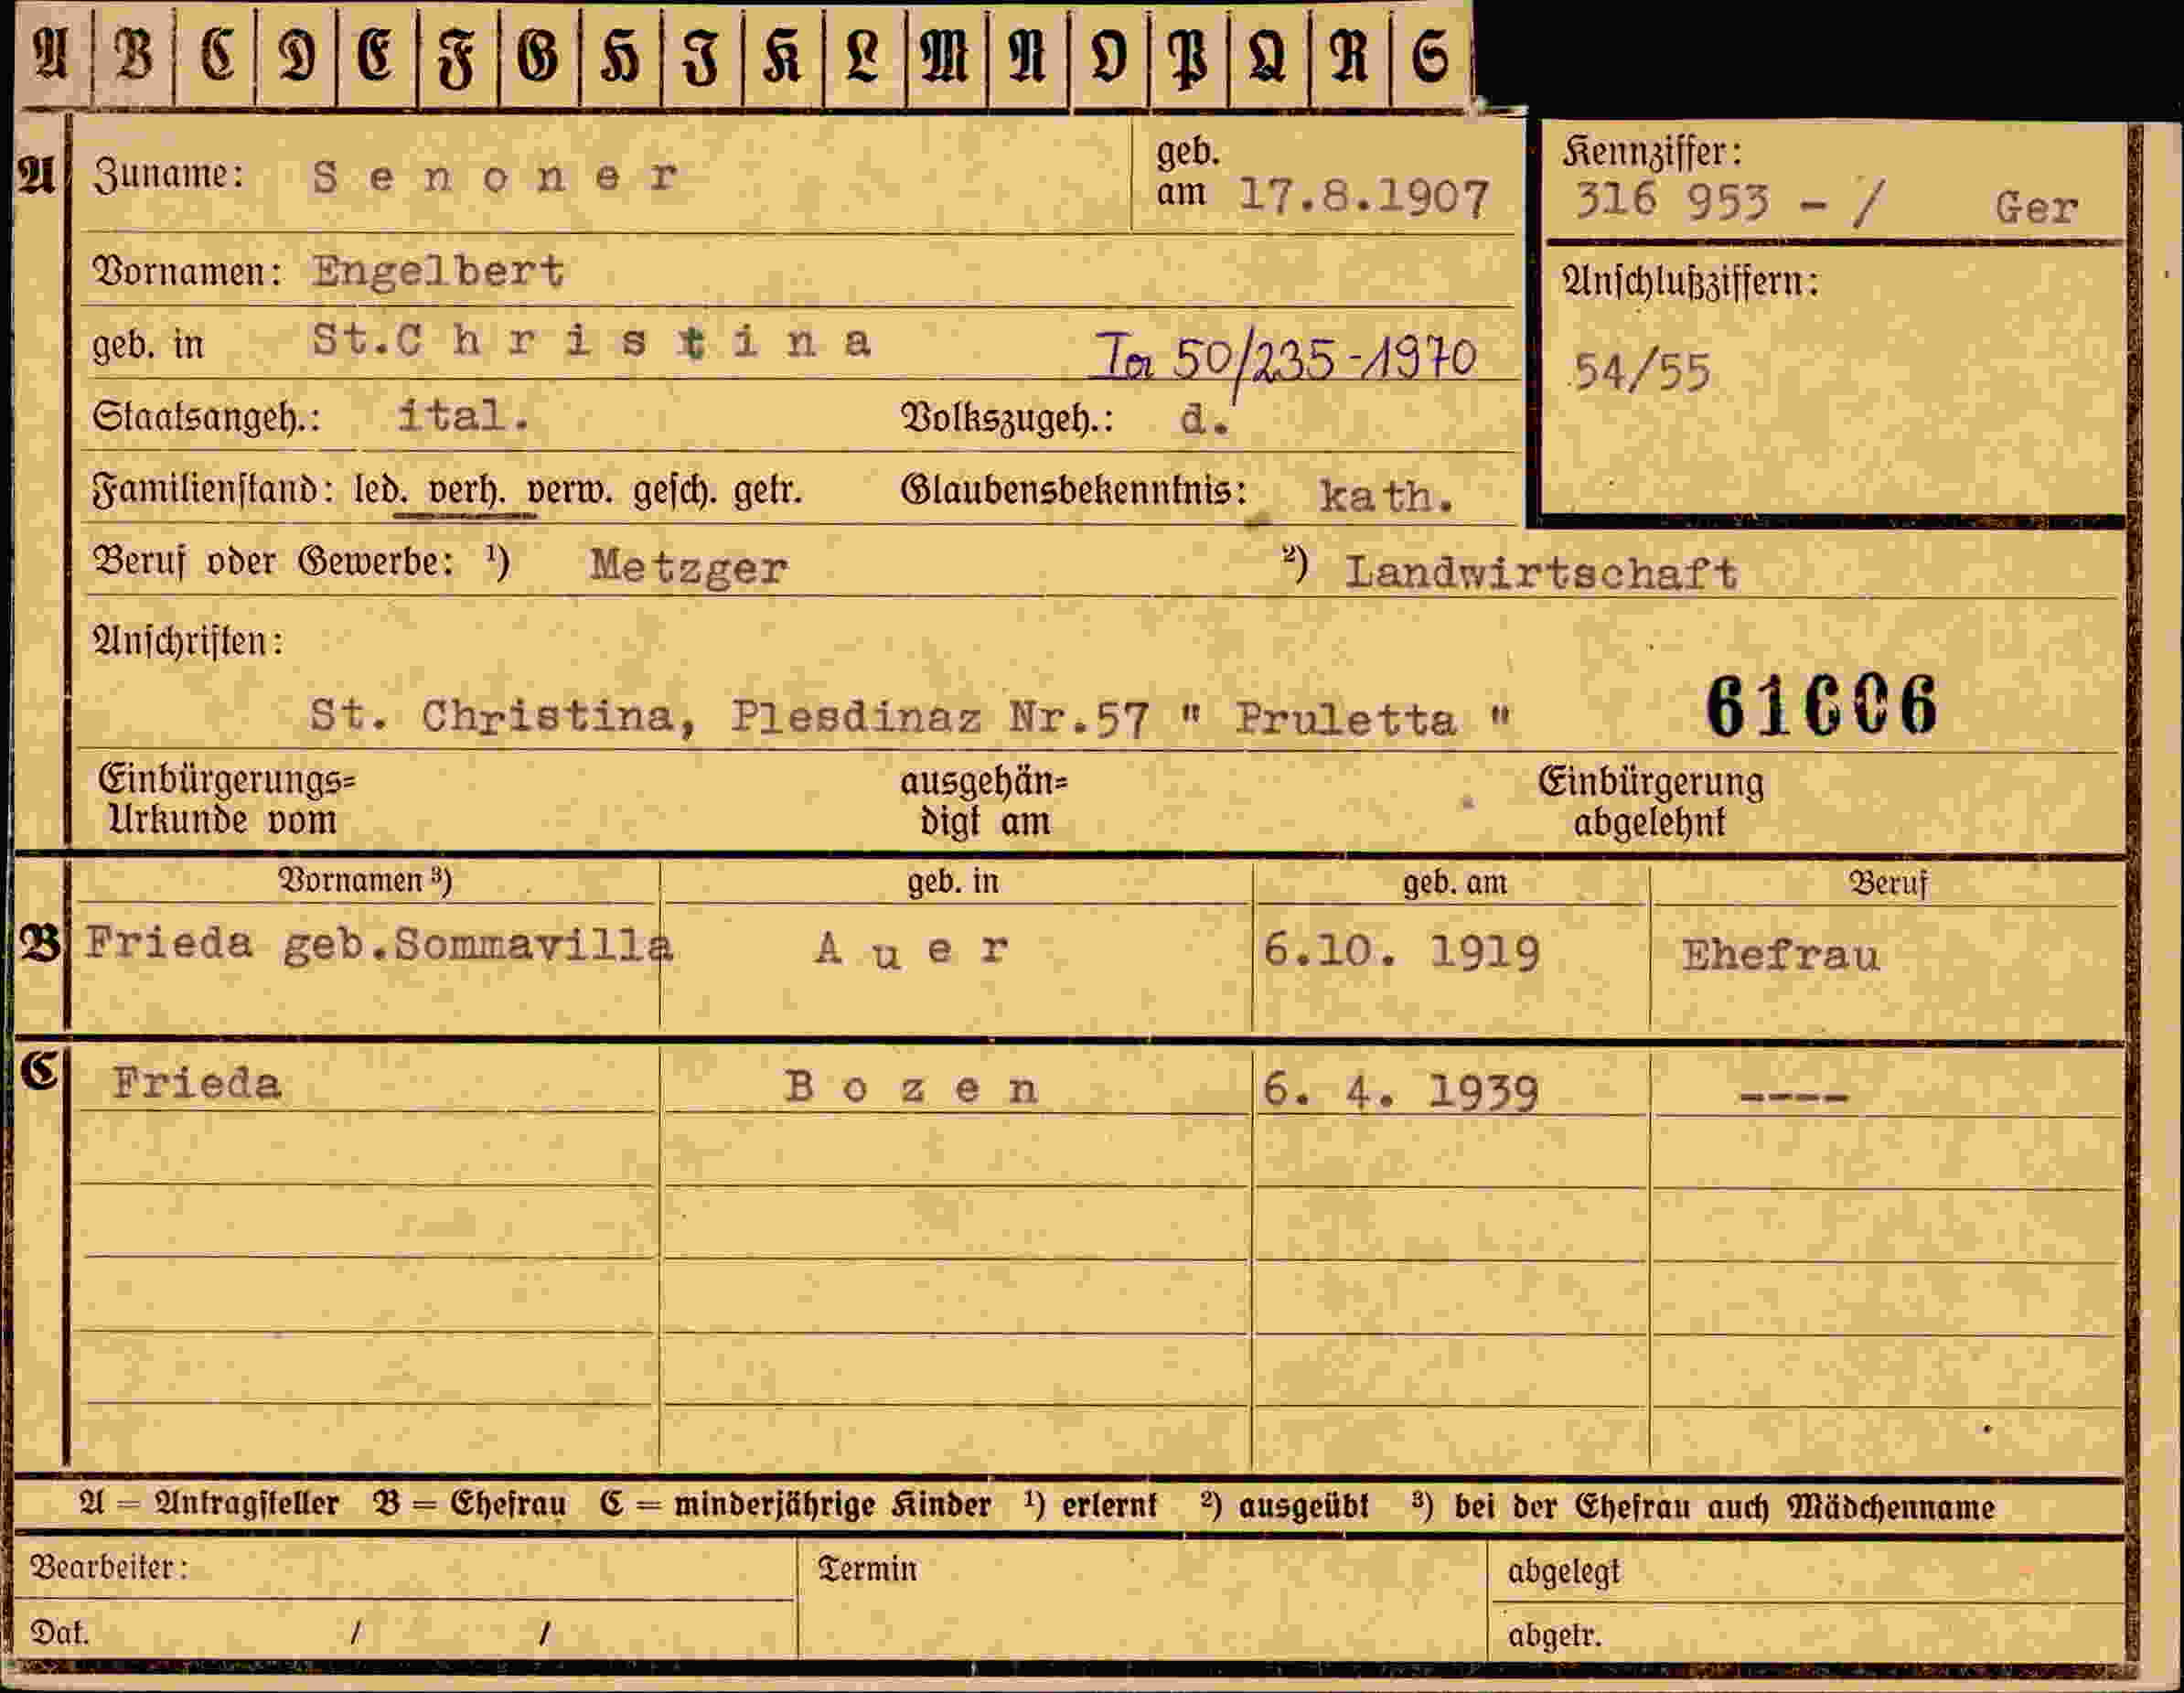 A B C D E F G H I K L M N O P Q R S
A Zuname: Senoner geb. am 17.8.1907 Kennziffer: 316 953 - / Ger
Vornamen: Engelbert Anschlußziffern:
geb. in St.Christina 50/235-1970 54/55
Staatsangeh.: ital. Volkszugeh.: d.
Familienstand: led. verh. verw. gesch. getr. Glaubensbekenntnis: kath.
Beruf oder Gewerbe: ¹) Metzger ²) Landwirtschaft
Anschriften:
St. Christina, Plesdinaz Nr.57 " Pruletta " 61606
Einbürgerungs= ausgehän= Einbürgerung
Urkunde vom digt am abgelehnt
Vornamen ³) geb. in geb. am Beruf
B Frieda geb.Sommavilla Auer 6.10. 1919 Ehefrau
C Frieda Bozen 6. 4. 1939 ----
A = Antragsteller B = Ehefrau C = minderjährige Kinder ¹) erlernt ²) ausgeübt ³) bei der Ehefrau auch Mädchenname
Bearbeiter: Termin abgelegt
Dat. / / abgetr.